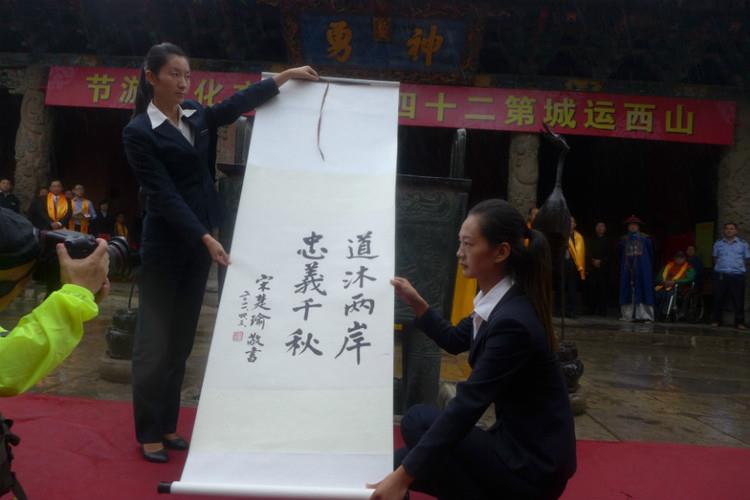 神勇
山西运城第二十四
化
游节
道沐两岸
忠義千秋
宋楚瑜敬書